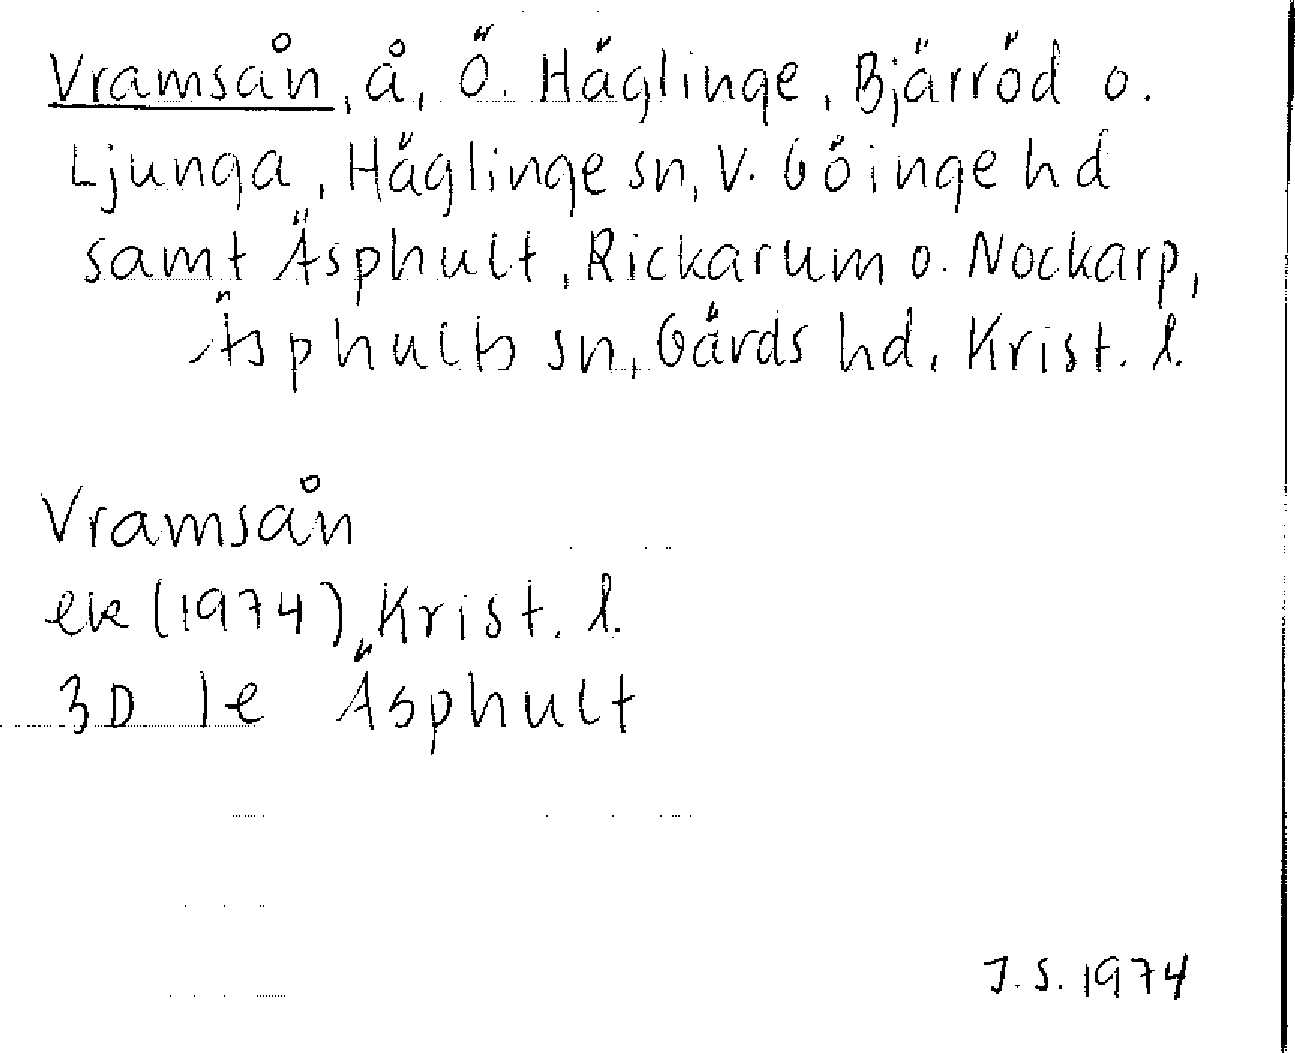 Vramsån, å, Ö. Häglinge, Bjärröd o.
Ljunga, Häglinge sn, V. Göinge hd
samt Äsphult, Rickarum o. Nockarp,
Äsphults sn, Gärds hd, Krist. l.
Vramsån
ek (1974), Krist. l.
3D 1e Äsphult
J.S. 1974